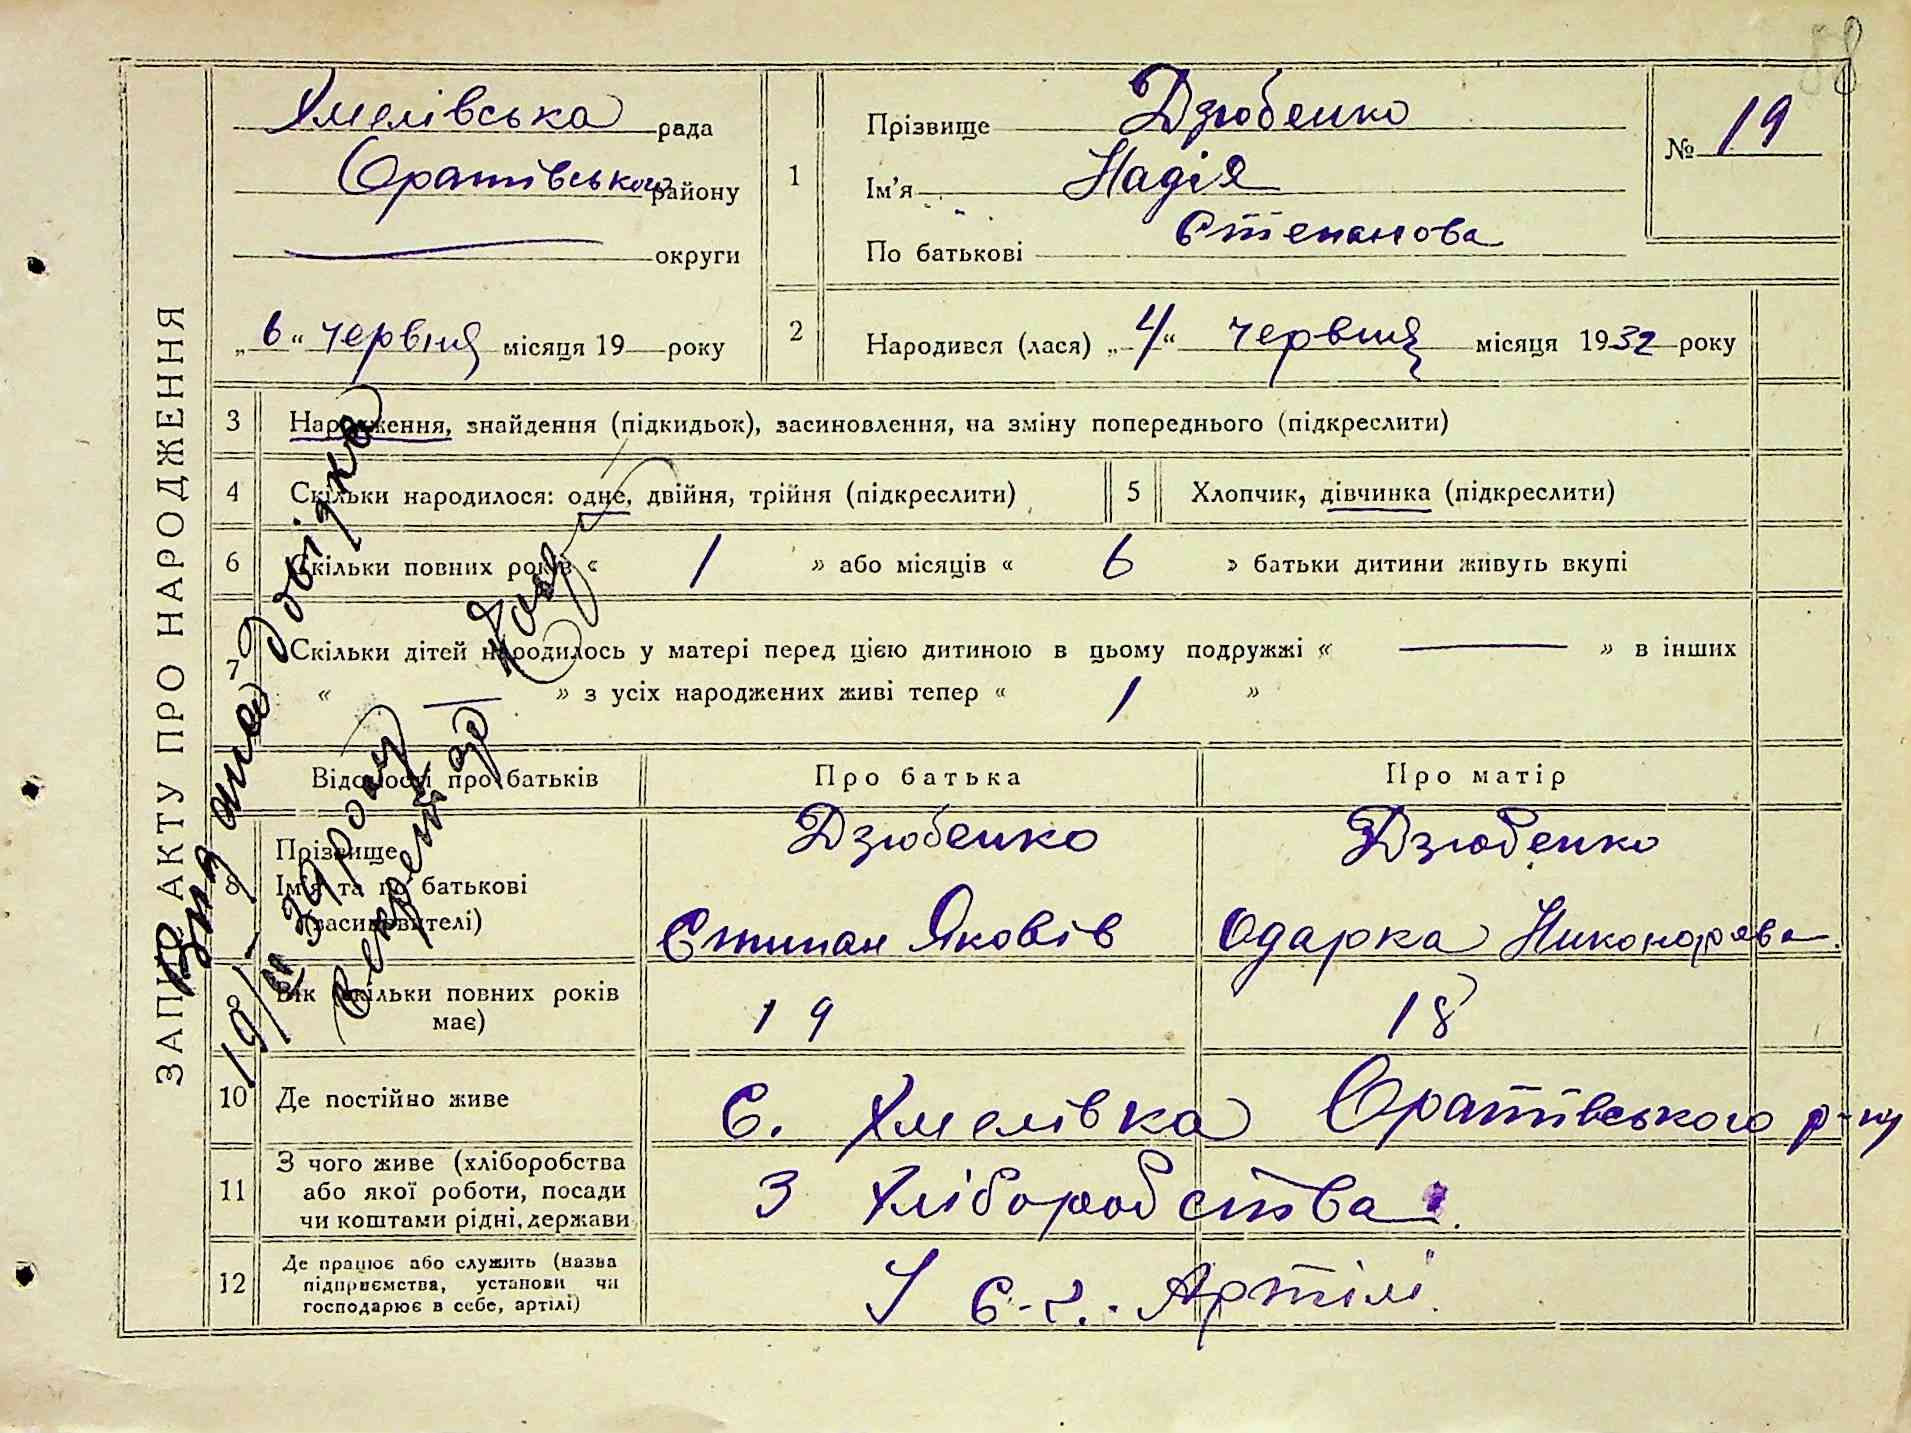 58
ЗАПИС АКТУ ПРО НАРОДЖЕННЯ
Хмелівська рада
Оратівського району
округи
„6“ червня місяця 19 року
1
Прізвище Дзюбенко
Ім'я Надія
По батькові Степанова
№ 19
2
Народився (лася) „4“ червня місяця 1932 року
3 Народження, знайдення (підкидьок), засиновлення, на зміну попереднього (підкреслити)
4 Скільки народилося: одне, двійня, трійня (підкреслити)
5 Хлопчик, дівчинка (підкреслити)
6 Скільки повних років « 1 » або місяців « 6 » батьки дитини живуть вкупі
7 Скільки дітей народилось у матері перед цією дитиною в цьому подружжі « — » в інших
« — » з усіх народжених живі тепер « 1 »
Відомості про батьків Про батька Про матір
8 Прізвище Дзюбенко Дзюбенко
Ім'я та по батькові
(засиновителі) Степан Яковів Одарка Никонорова
9 Вік (скільки повних років
має) 19 18
10 Де постійно живе с. Хмелівка Оратівського р-ну
11 З чого живе (хліборобства
або якої роботи, посади
чи коштами рідні, держави З Хліборобства
12 Де працює або служить (назва
підприємства, установи чи
господарює в себе, артілі) У с-г. Артілі
Видана довідка
39 року
Секретар